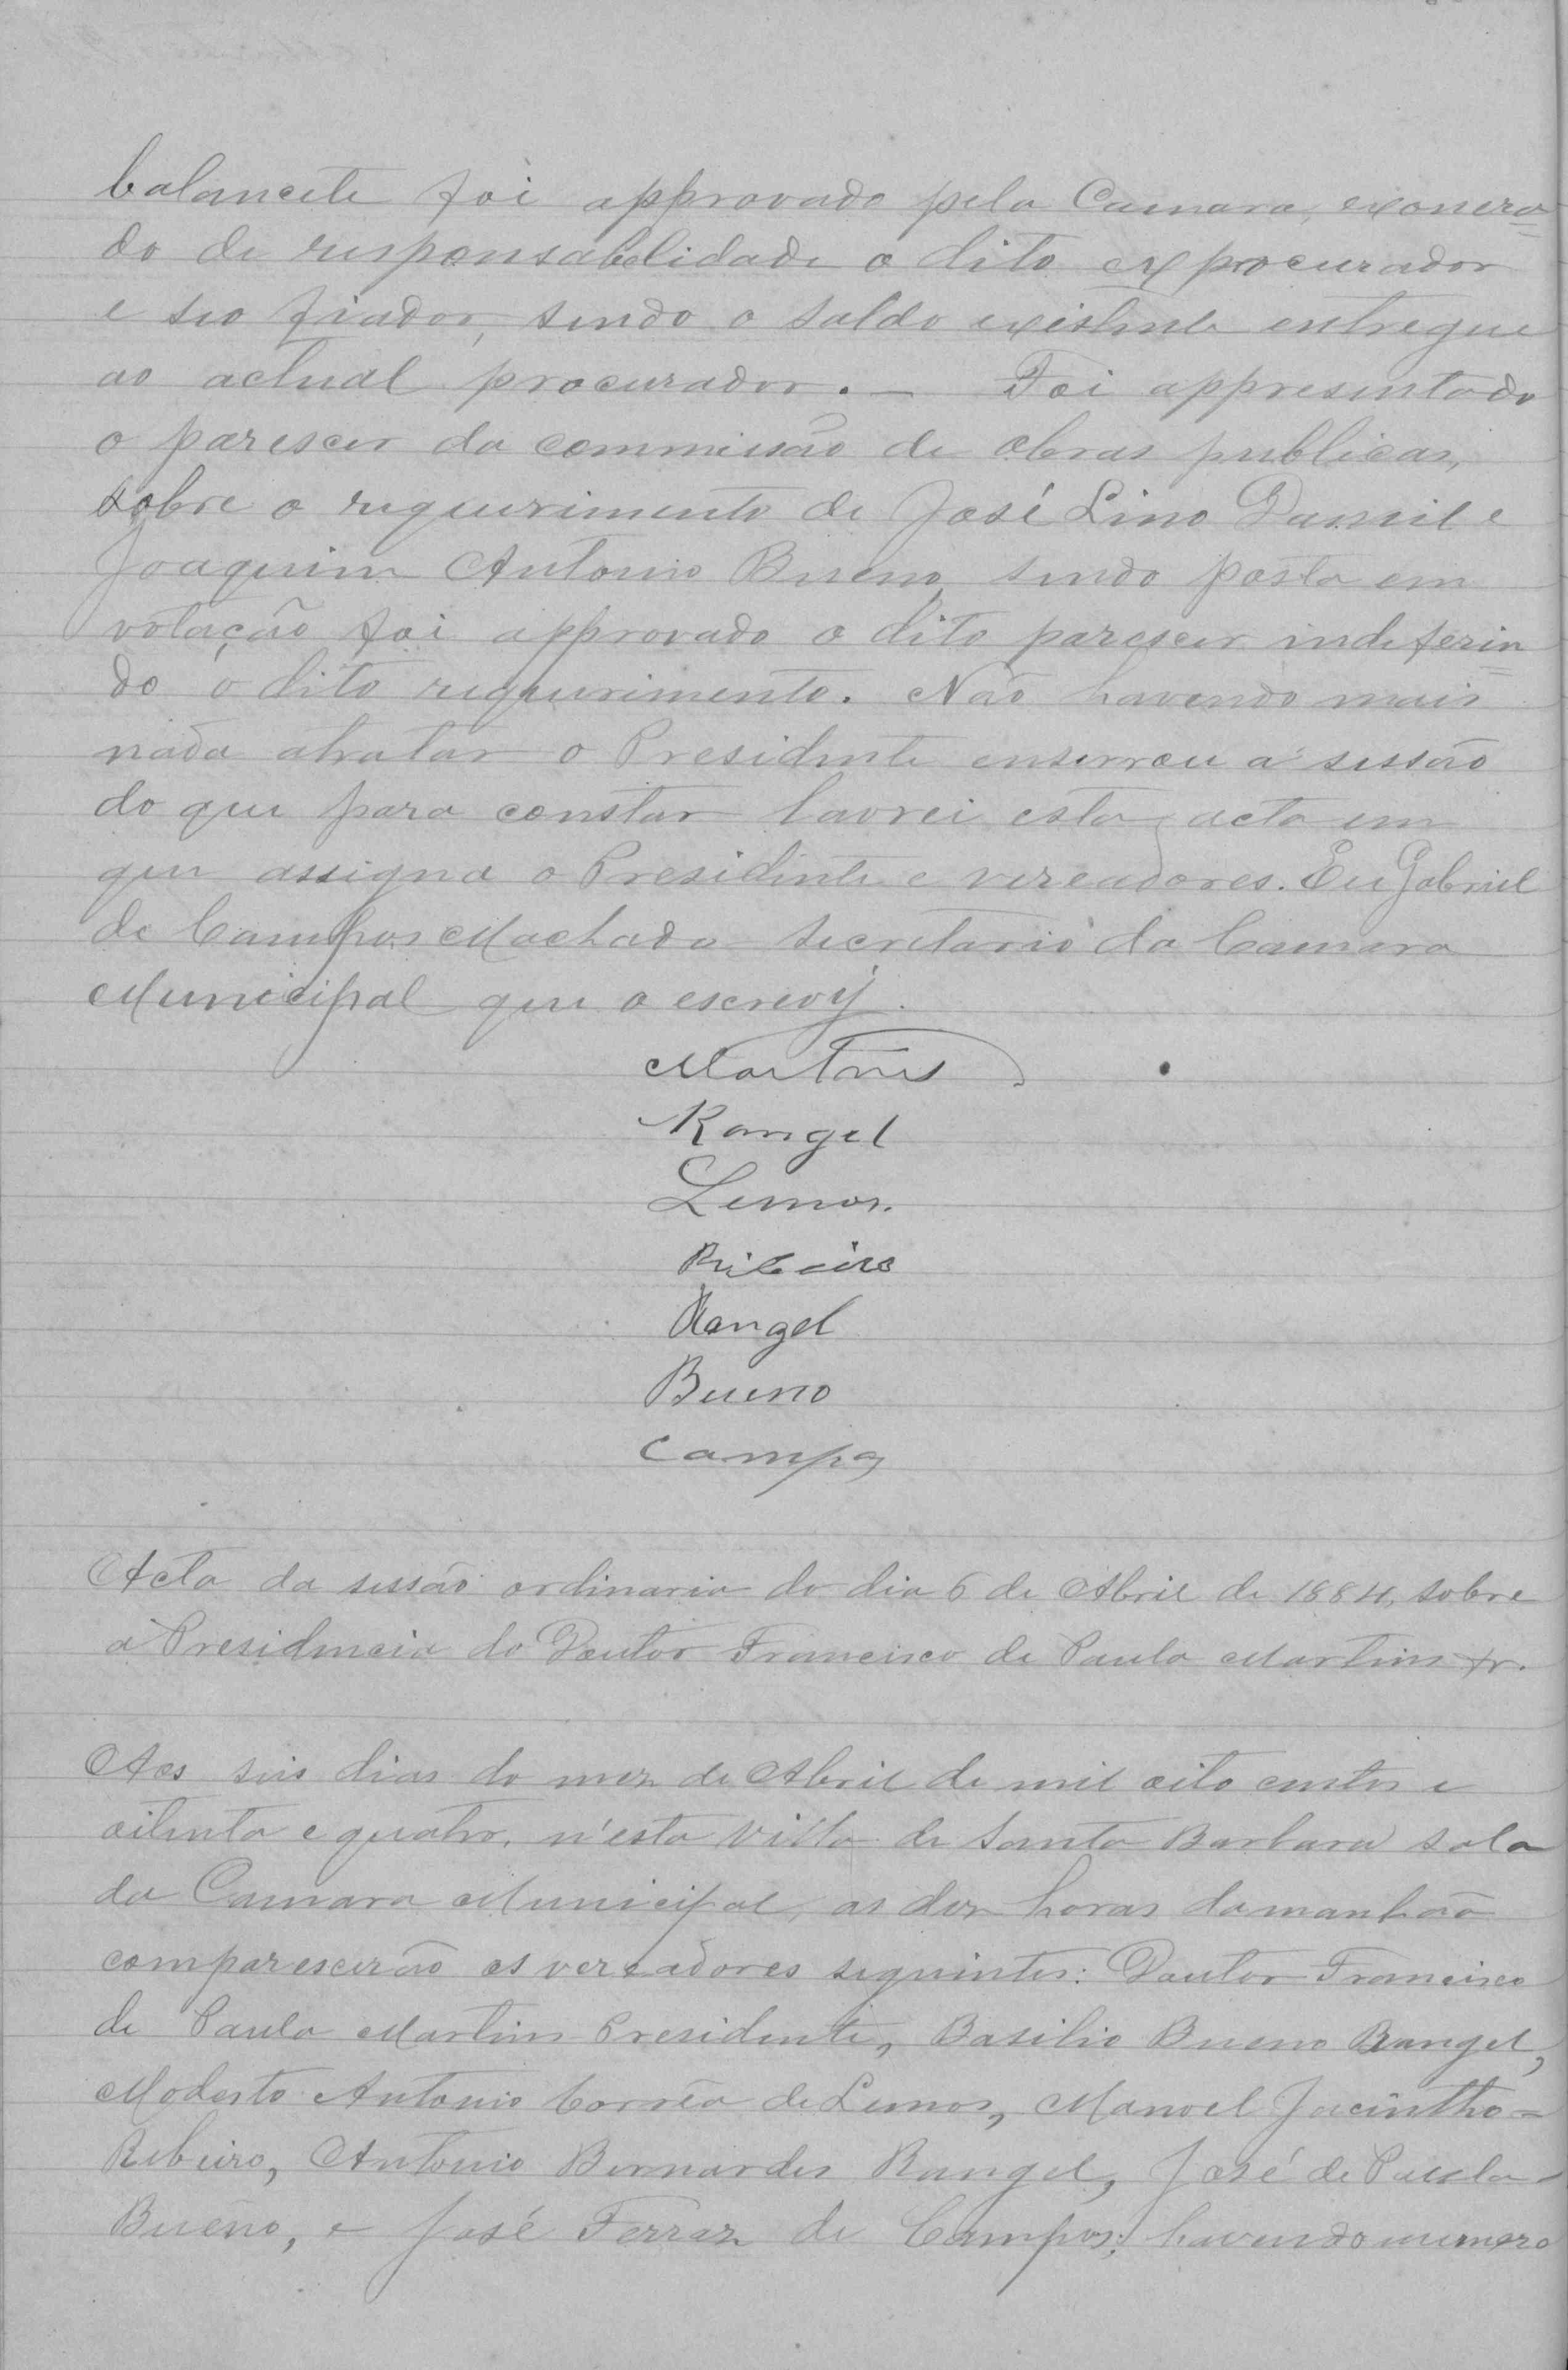 balancete foi approvado pela Camara, exonera=
do de responsabelidade o dito ex procurador
e seo fiador, sendo o saldo existente entregue
ao actual procurador. — Foi appresentado
o parescer da commissão de obras publicas,
sobre o requerimento de José Lino Damil e
Joaquim Antonio Bueno, sendo posto em
votação foi approvado o dito parescer indeferin=
do o dito requerimento. Não havendo mais
nada atratar o Presidente enserrou a sessão
do que para constar lavrei esta acta em
que assigna o Presidente e vereadores. Eu Gabriel
de Campos Machado secretario da Camara
Municipal que o escrevÿ.
Martins
Rangel
Lemos.
Ribeiro
Rangel
Bueno
Campos
Acta da sessão ordinaria do dia 6 de Abril de 1884, sobre
a Presidencia do Doutor Francisco de Paula Martins
Aos seis dias do mez de Abril de mil oito centos e
oitenta e quatro, n'esta Villa de Santa Barbara sala
da Camara Municipal, as dez horas damanhão
comparescerão os vereadores seguintes: Doutor Francisco
de Paula Martins Presidente, Basilio Bueno Rangel,
Modesto Antonio Corrêa de Lemos, Manoel Jacintho=
Ribeiro, Antonio Bernardes Rangel, José de Paula=
Bueno, e José Ferraz de Campos; havendo numero